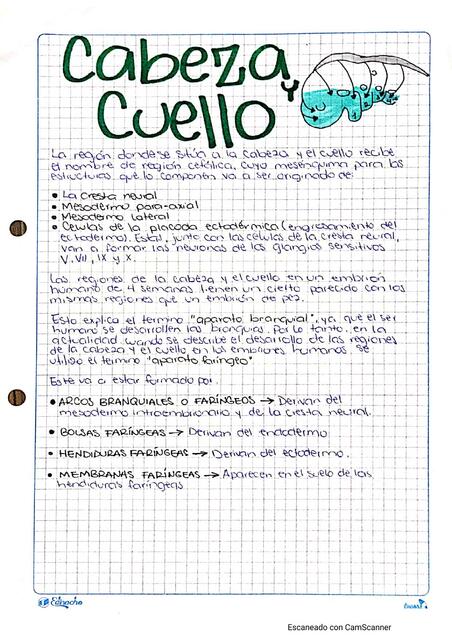 Cabeza
y
Cuello
La región donde se sitúa a la cabeza y el cuello recibe
el nombre de región cefálica, cuyo mesénquima para las
estructuras que lo componen va a ser originado de:
• La cresta neural
• Mesodermo para-axial
• Mesodermo lateral
• Células de la placoda ectodérmica (engrosamiento del
ectodermo). Estas, junto con las células de la cresta neural,
van a formar las neuronas de los glangios sensitivos
V, VII, IX y X.
Las regiones de la cabeza y el cuello en un embrión
humano de 4 semanas tienen un cierto parecido con las
mismas regiones que un embrión de pez.
Esto explica el termino "aparato branquial", ya que el ser
humano se desarrollen las branquias. Por lo tanto, en la
actualidad, cuando se describe el desarrollo de las regiones
de la cabeza y el cuello en los embriones humanos se
utiliza el termino "aparato faríngeo"
Este va a estar formado por:
• ARCOS BRANQUIALES O FARÍNGEOS → Derivan del
mesodermo intraembrionario y de la cresta neural.
• BOLSAS FARÍNGEAS → Derivan del endodermo
• HENDIDURAS FARÍNGEAS → Derivan del ectodermo.
• MEMBRANAS FARÍNGEAS → Aparecen en el suelo de las
hendiduras faríngeas
Escaneado con CamScanner